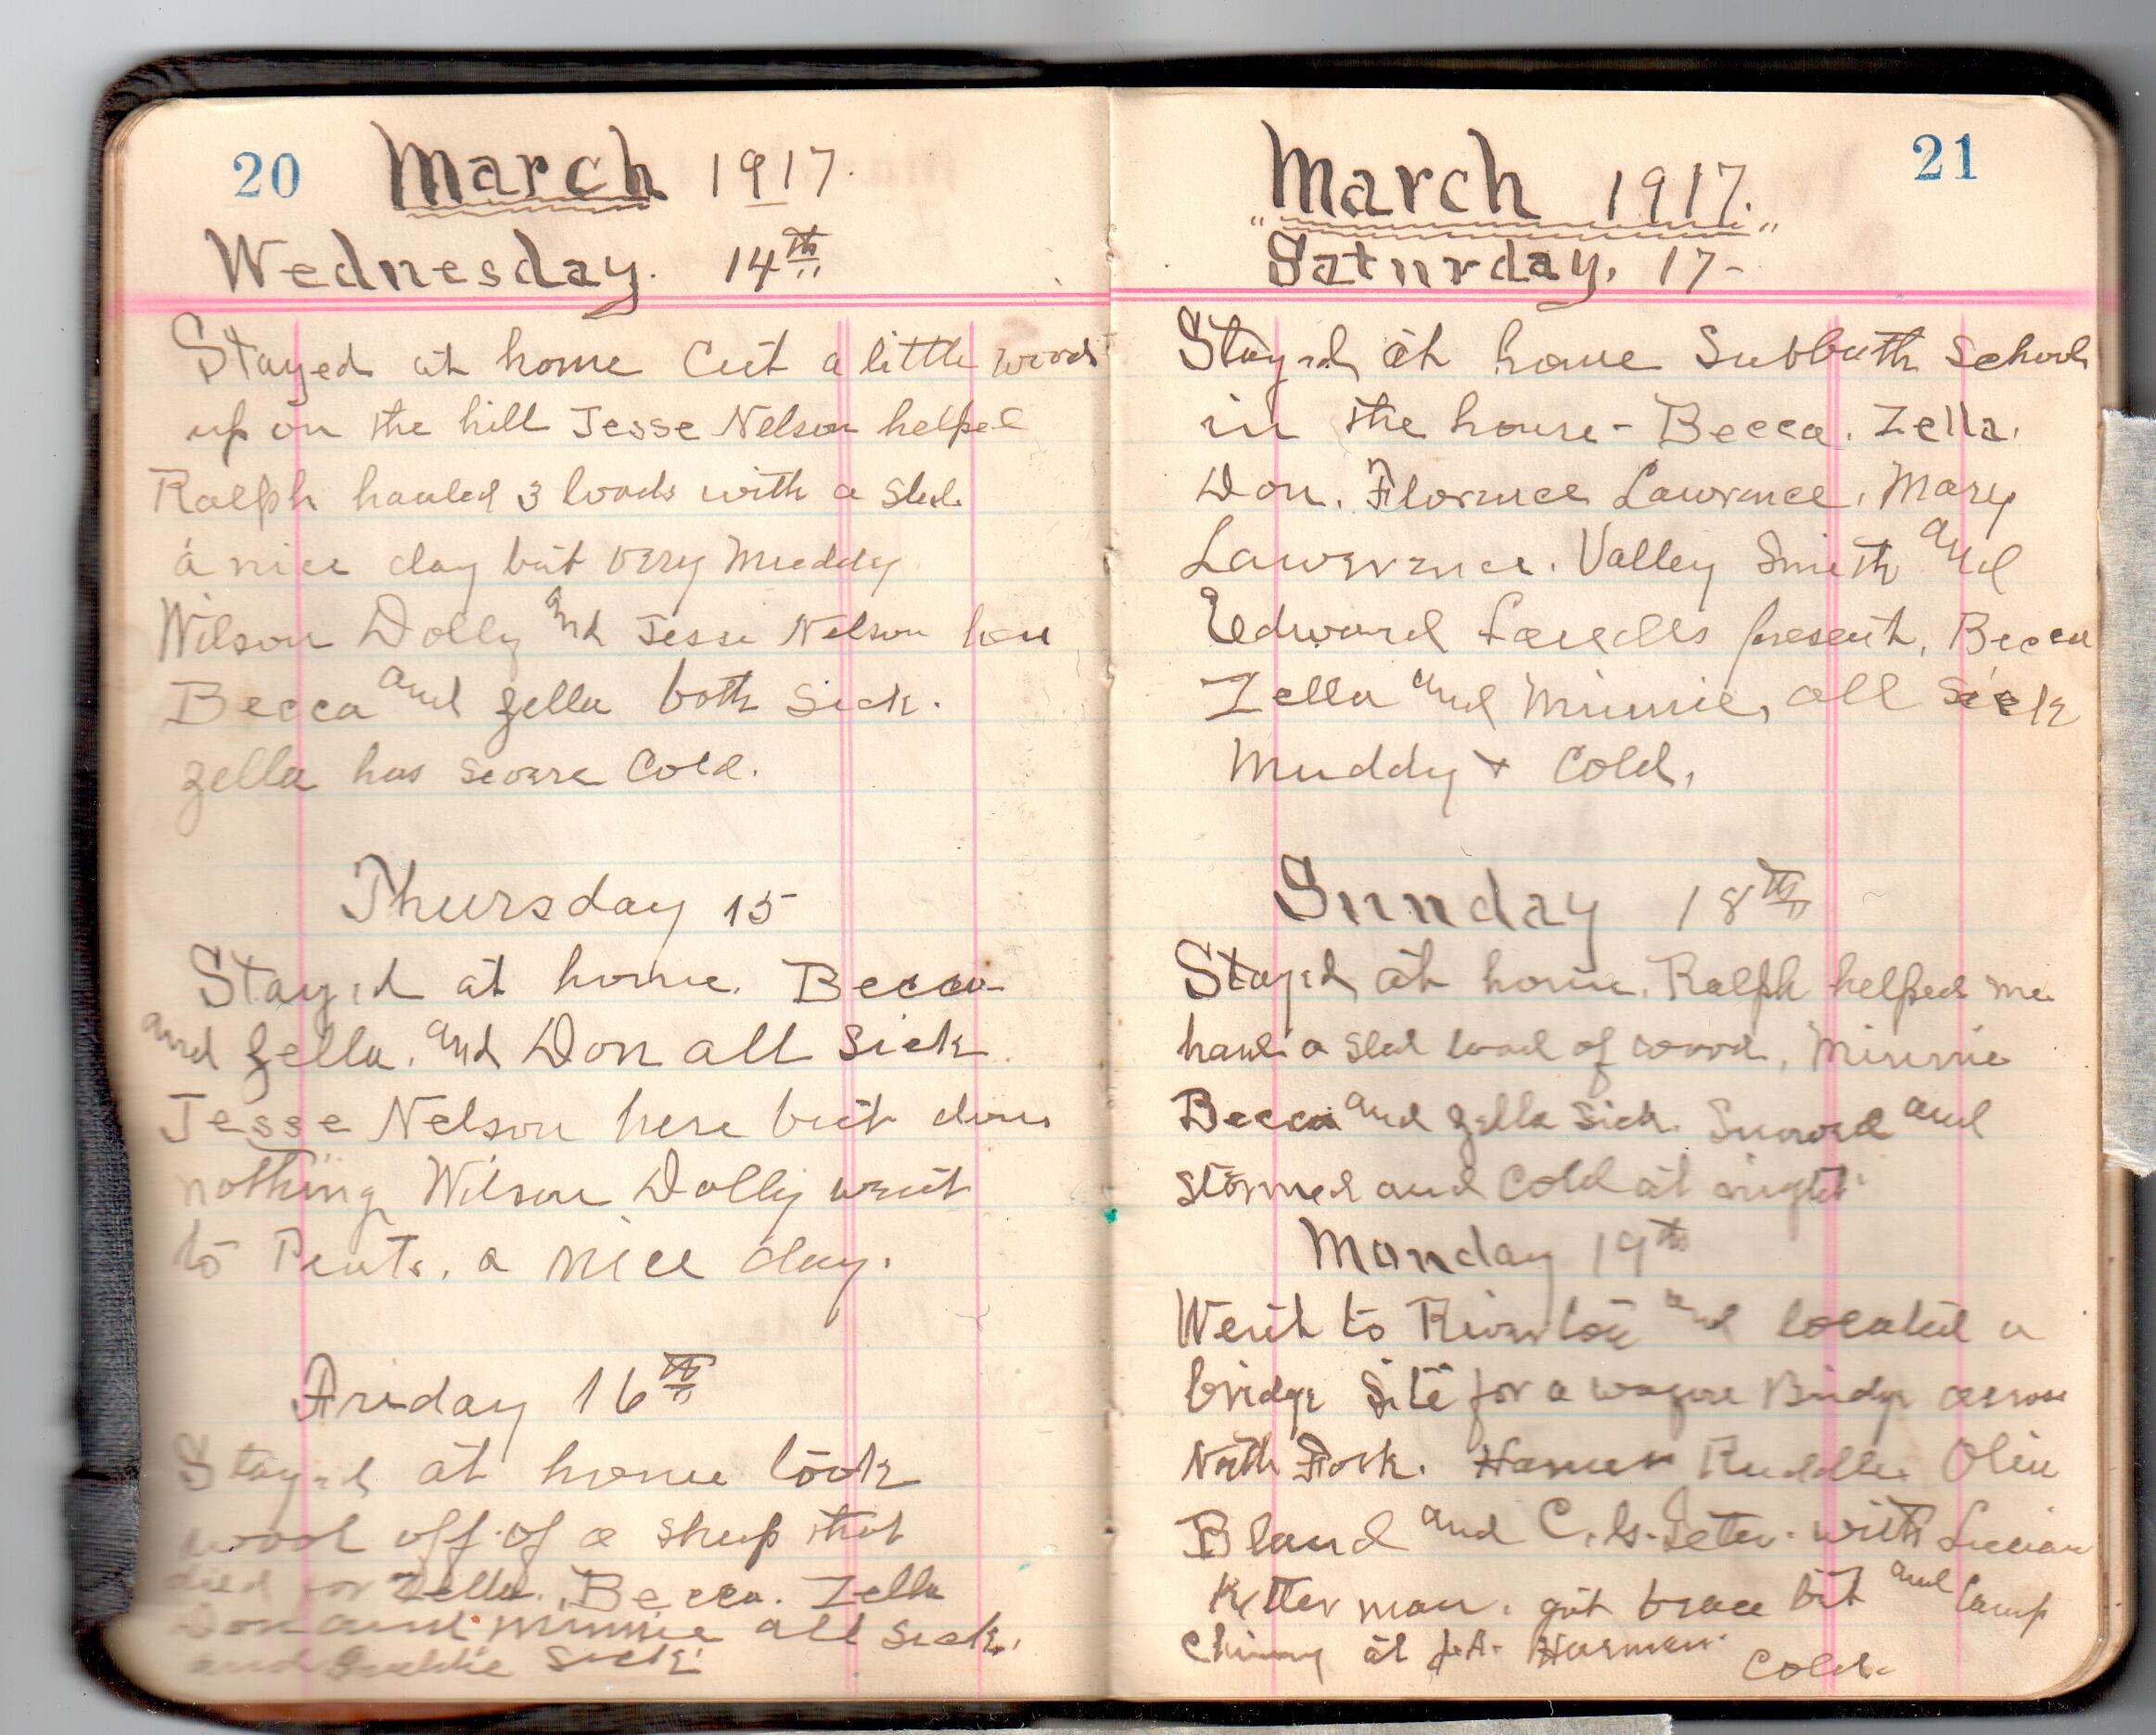 20 March 1917.
Wednesday. 14th
Stayed at home Cut a little wood
up on the hill Jesse Nelson helped
Ralph hauled 3 loads with a sled.
a nice day but very muddy
Wilson Dolly and Jesse Nelson here
Becca and Zella both sick.
Zella has severe Cold.
Thursday 15
Stayed at home. Becca
and Zella. and Don all sick
Jesse Nelson here but done
nothing Wilson Dolly went
to Pents. a nice day.
Friday 16th
Stayed at home took
wool off of a sheep that
died for Zella. Becca. Zella
Don and Minnie all sick.
and sick
21
March 1917.
Saturday. 17-
Stayed at home Subbuth School
in the house - Becca. Zella.
Don. Florence Lawrence. Mary
Lawrence. Valley Smith and
Edward present. Becca
Zella and Minnie, all sick
Muddy + Cold.
Sunday 18th
Stayed at home. Ralph helped me
haul a sled load of wood. Minnie
Becca and Zella sick. Snowed and
stormed and Cold at night.
Monday 19th
Went to Riverton and located a
bridge site for a wagon Bridge across
North Fork. Harmon Ruddle Olin
Bland and C. G. Teter. with Lucian
Ketterman. got brace bit and lamp
Chimny at J.A. Harman. Cold.